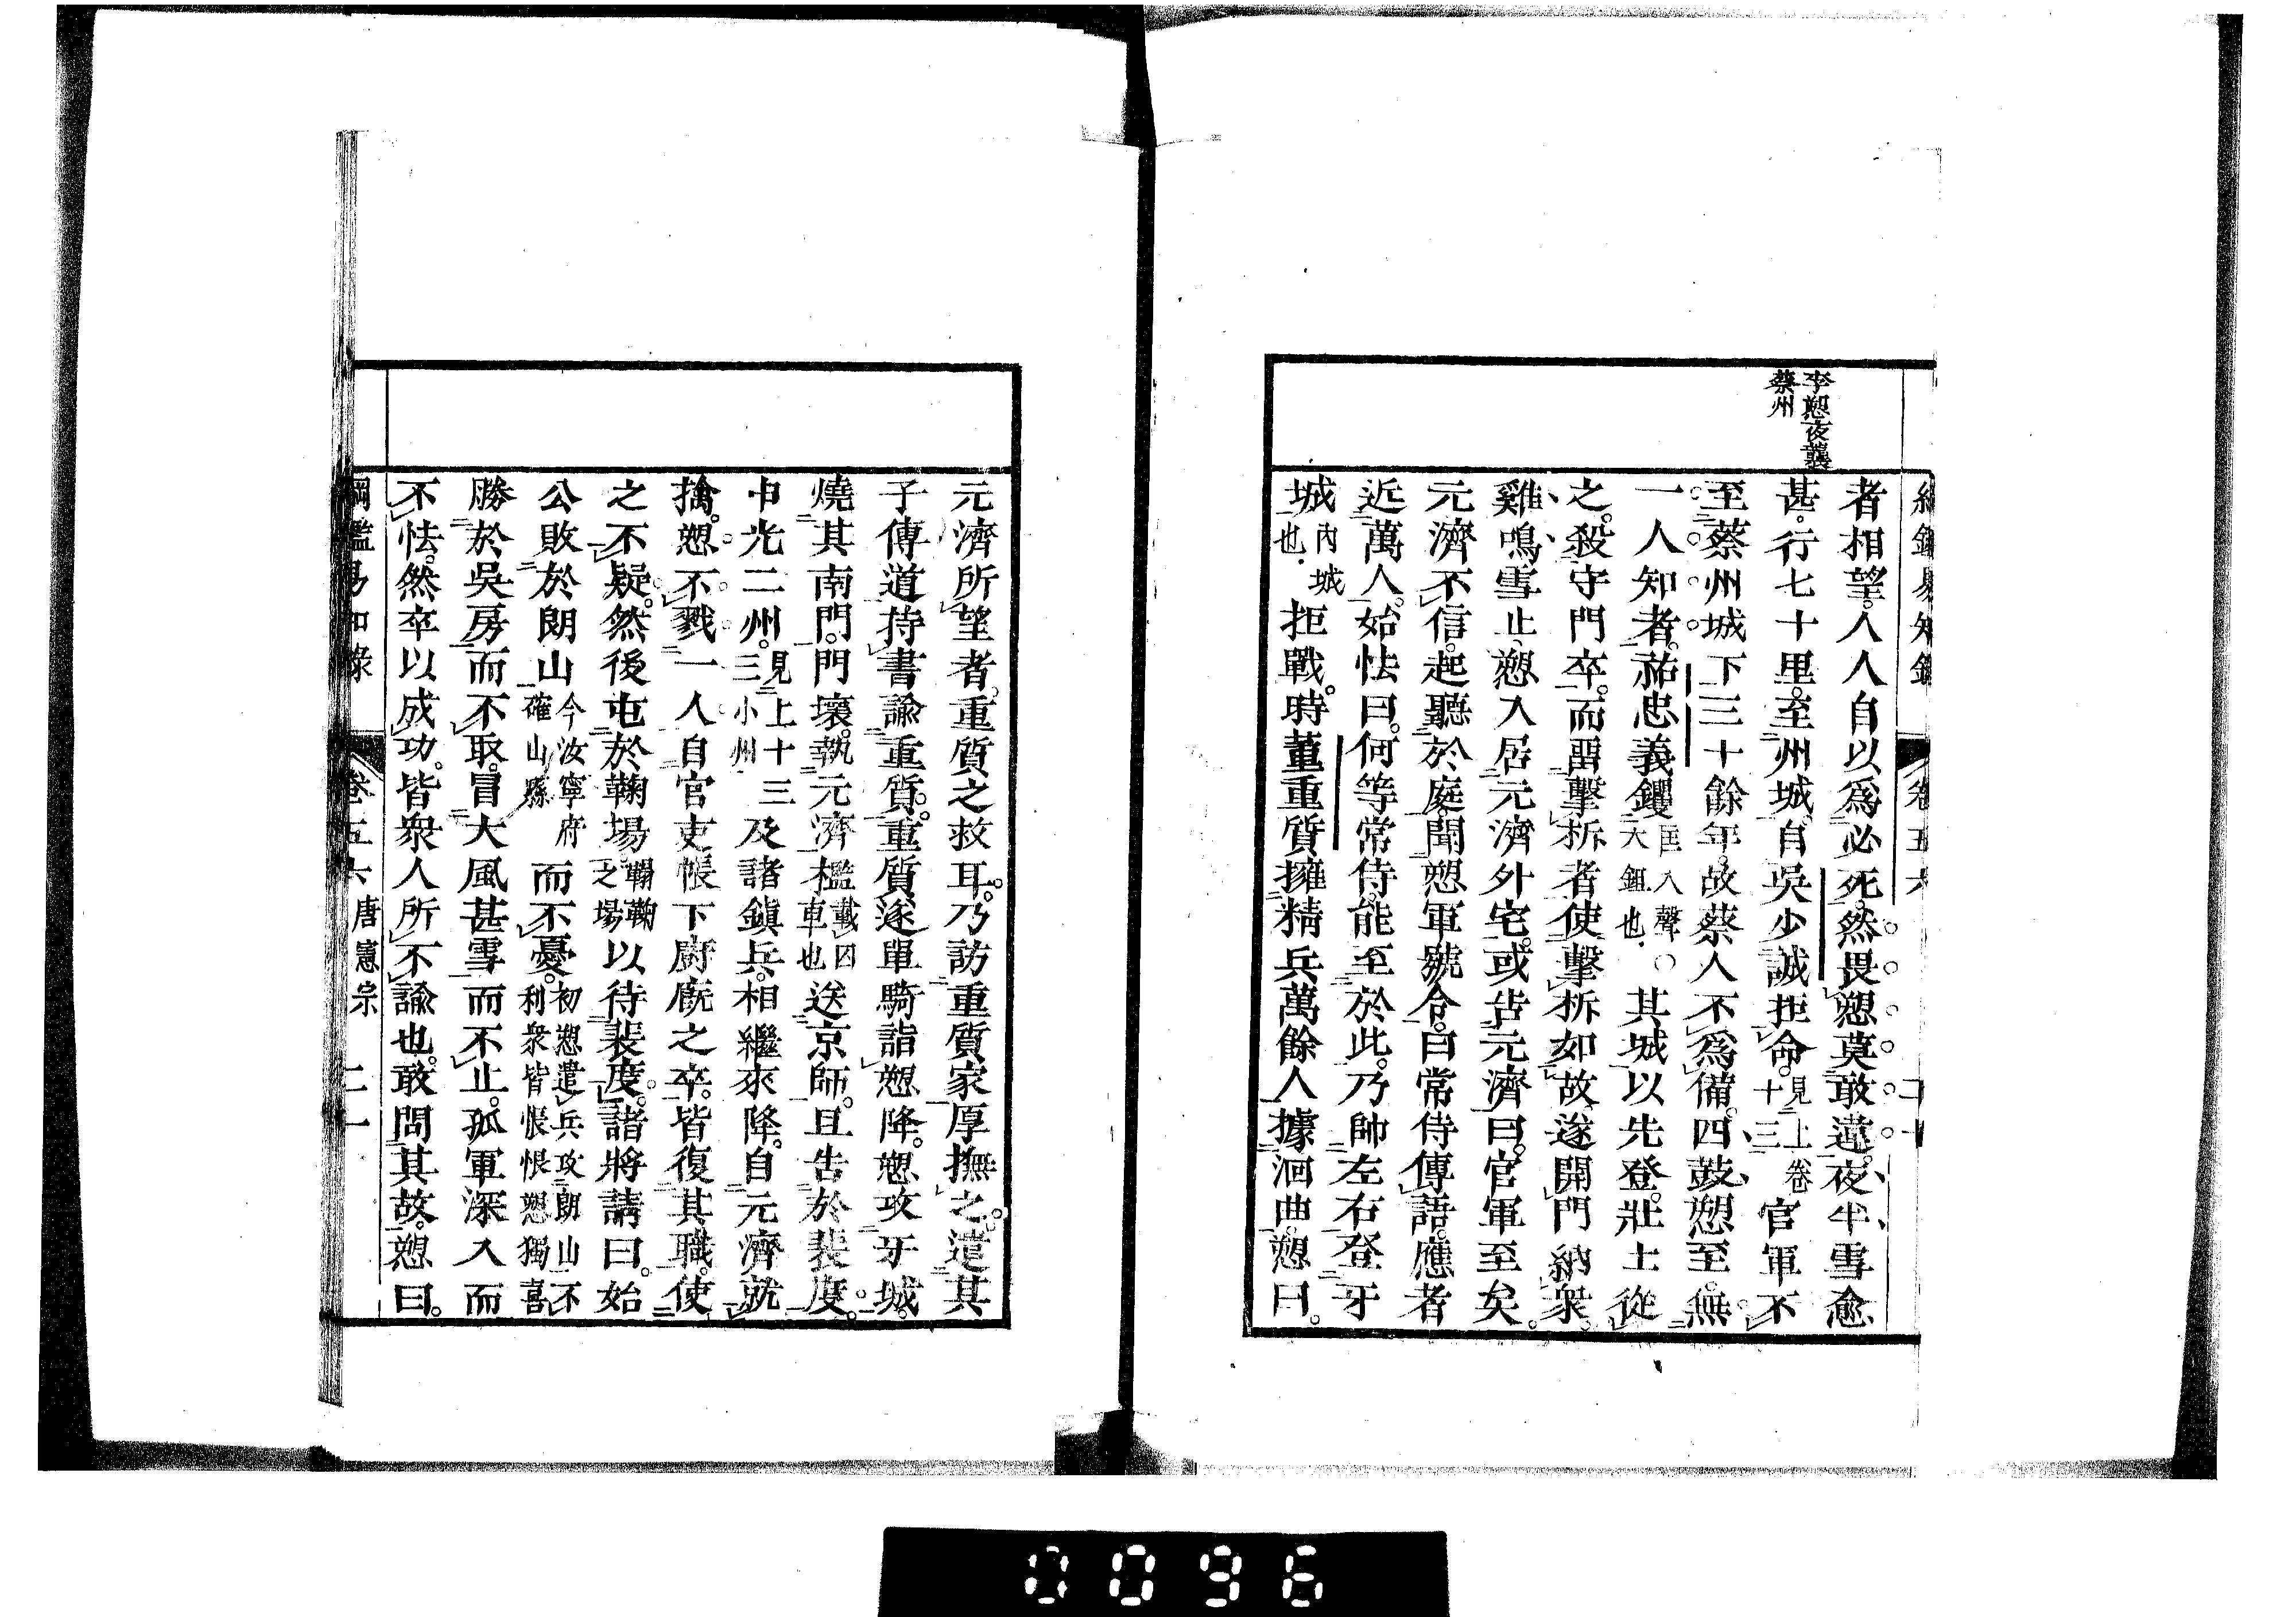 李愬夜襲
蔡州
者相望。人人自以爲必死。然畏愬莫敢違。夜半雪愈
甚。行七十里。至州城。自吳少誠拒命。見上卷十三官軍不
至蔡州城下三十餘年。故蔡人不爲備。四鼓愬至。無
一人知者。祐忠義钁匡入聲。○大鉏也。其城以先登。壯士從
之。殺守門卒。而留擊柝者使擊柝如故。遂開門納衆。
雞鳴雪止。愬入居元濟外宅。或告元濟曰。官軍至矣。
元濟不信。起聽於庭。聞愬軍號令。曰常侍傳語。應者
近萬人。始怯曰。何等常侍。能至於此。乃帥左右登牙
城內城也。拒戰。時董重質擁精兵萬餘人據洄曲。愬曰。
元濟所望者。重質之救耳。乃訪重質家厚撫之。遣其
子傳道持書諭重質。重質遂單騎詣愬降。愬攻牙城。
燒其南門。門壞。執元濟檻載囚車也送京師。且告於裴度。
申光二州。見上十三三小州及諸鎭兵。相繼來降。自元濟就
擒。愬不戮一人自官吏帳下廚廐之卒。皆復其職。使
之不疑。然後屯於鞠場。鞠之場以待裴度。諸將請曰。始
公敗於朗山今汝寧府確山縣而不憂。初愬遣兵攻朗山不利衆皆悵恨愬獨喜
勝於吳房而不取。冒大風甚雪而不止。孤軍深入而
不怯。然卒以成功。皆衆人所不諭也。敢問其故。愬曰。
綱鑑易知錄 卷五六 唐憲宗 二十一
0096